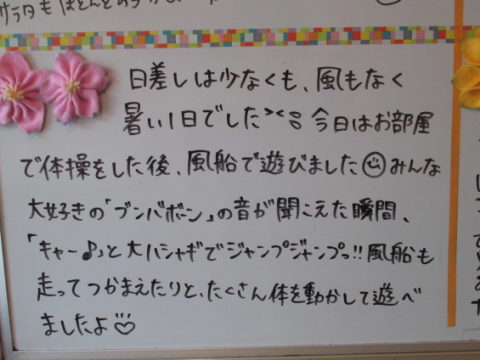 サラダもほとんどの
日差しは少なくも、風もなく
暑い1日でした>< 今日はお部屋
で体操をした後、風船で遊びました☺みんな
大好きの「ブンバボーン」の音が聞こえた瞬間、
「キャー♪」と大ハシャギでジャンプジャンプっ!!風船も
走ってつかまえたりと、たくさん体を動かして遊べ
ましたよ♡